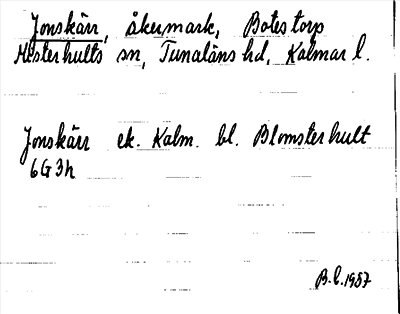 Jonskärr, åkermark, Botestorp
Misterhults sn, Tunaläns hd, Kalmar l.
Jonskärr ek. Kalm. bl. Blomsterhult
6G3h
B.L.1957